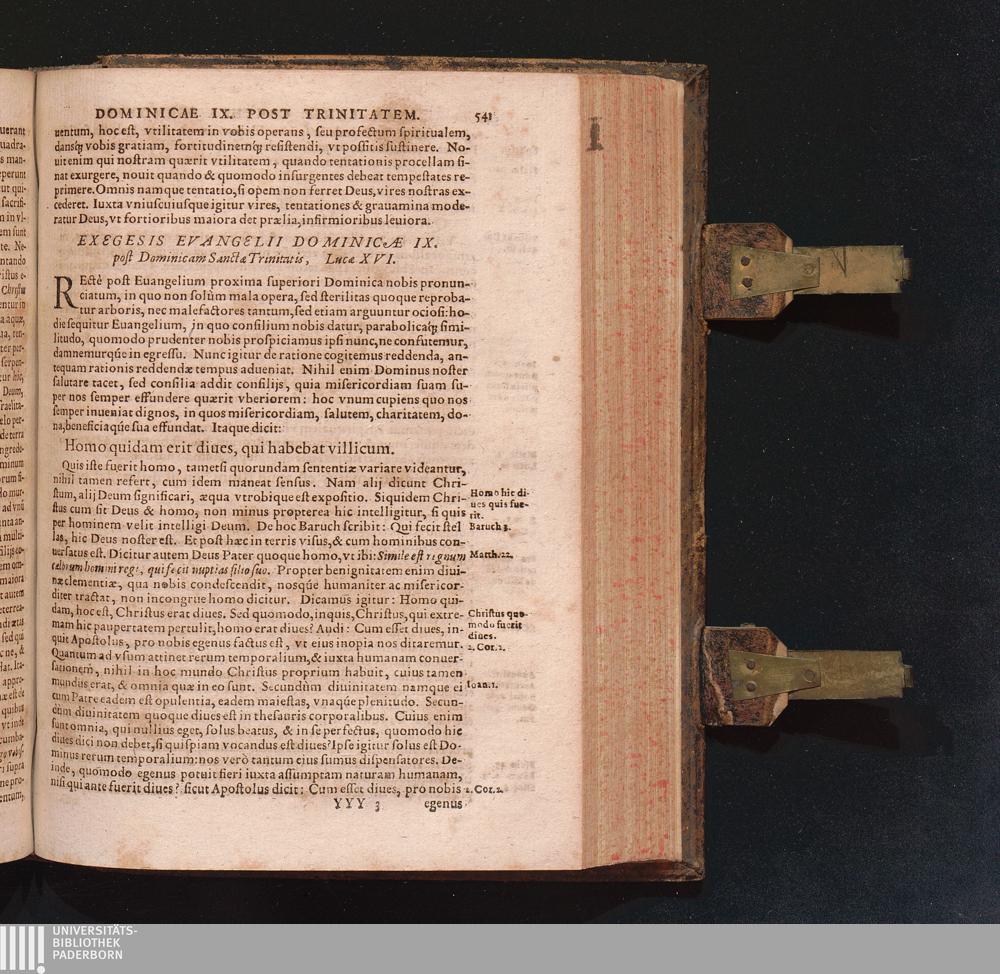 DOMINICAE IX. POST TRINITATEM. 541
uentum, hoc est, vtilitatem in vobis operans, seu profectum spiritualem,
dansq́; vobis gratiam, fortitudinemq́; resistendi, vt possitis sustinere. No-
uit enim qui nostram quærit vtilitatem, quando tentationis procellam si-
nat exurgere, nouit quando & quomodo insurgentes debeat tempestates re-
primere. Omnis namque tentatio, si opem non ferret Deus, vires nostras ex-
cederet. Iuxta vniuscuiusque igitur vires, tentationes & grauamina mode-
ratur Deus, vt fortioribus maiora det prælia, infirmioribus leuiora.
EXEGESIS EVANGELII DOMINICÆ IX.
post Dominicam Sanctæ Trinitatis, Lucæ XVI.
REctè post Euangelium proxima superiori Dominica nobis pronun-
ciatum, in quo non solùm mala opera, sed sterilitas quoque reproba-
tur arboris, nec malefactores tantum, sed etiam arguuntur ociosi: ho-
die sequitur Euangelium, in quo consilium nobis datur, parabolicaq́; simi-
litudo, quomodo prudenter nobis prospiciamus ipsi nunc, ne confutemur,
damnemurqúe in egressu. Nunc igitur de ratione cogitemus reddenda, an-
tequam rationis reddendæ tempus adueniat. Nihil enim Dominus noster
salutare tacet, sed consilia addit consilijs, quia misericordiam suam su-
per nos semper effundere quærit vberiorem: hoc vnum cupiens quo nos
semper inueniat dignos, in quos misericordiam, salutem, charitatem, do-
na, beneficiaqúe sua effundat. Itaque dicit:
Homo quidam erit diues, qui habebat villicum.
Quis iste fuerit homo, tametsi quorundam sententiæ variare videantur,
nihil tamen refert, cum idem maneat sensus. Nam alij dicunt Chri-
stum, alij Deum significari, æqua vtrobique est expositio. Siquidem Chri-
stus cum sit Deus & homo, non minus propterea hic intelligitur, si quis
per hominem velit intelligi Deum. De hoc Baruch scribit: Qui fecit stel
las, hic Deus noster est. Et post hæc in terris visus, & cum hominibus con-
uersatus est. Dicitur autem Deus Pater quoque homo, vt ibi: Simile est regnum
cælorum homini regi, qui fecit nuptias filio suo. Propter benignitatem enim diui-
næ clementiæ, qua nobis condescendit, nosqúe humaniter ac misericor-
diter tractat, non incongrue homo dicitur. Dicamus igitur: Homo qui-
dam, hoc est, Christus erat diues. Sed quomodo, inquis, Christus, qui extre-
mam hic paupertatem pertulit, homo erat diues? Audi: Cum esset diues, in-
quit Apostolus, pro nobis egenus factus est, vt eius inopia nos ditaremur.
Quantum ad vsum attinet rerum temporalium, & iuxta humanam conuer-
sationem, nihil in hoc mundo Christus proprium habuit, cuius tamen
mundus erat, & omnia quæ in eo sunt. Secundùm diuinitatem namque ei
cum Patre eadem est opulentia, eadem maiestas, vnaqúe plenitudo. Secun-
dùm diuinitatem quoque diues est in thesauris corporalibus. Cuius enim
sunt omnia, qui nullius eget, solus beatus, & in se perfectus, quomodo hic
diues dici non debet, si quispiam vocandus est diues? Ipse igitur solus est Do-
minus rerum temporalium: nos verò tantum eius sumus dispensatores. De-
inde, quomodo egenus potuit fieri iuxta assumptam naturam humanam,
nisi qui ante fuerit diues? sicut Apostolus dicit: Cum esset diues, pro nobis
YYY 3 egenus
Homo hic di-
ues quis fue-
rit.
Baruch 3.
Matth. 22.
Christus quo-
modo fuerit
diues.
2. Cor. 2.
Ioan. 1.
2. Cor. 2.
UNIVERSITÄTS-
BIBLIOTHEK
PADERBORN